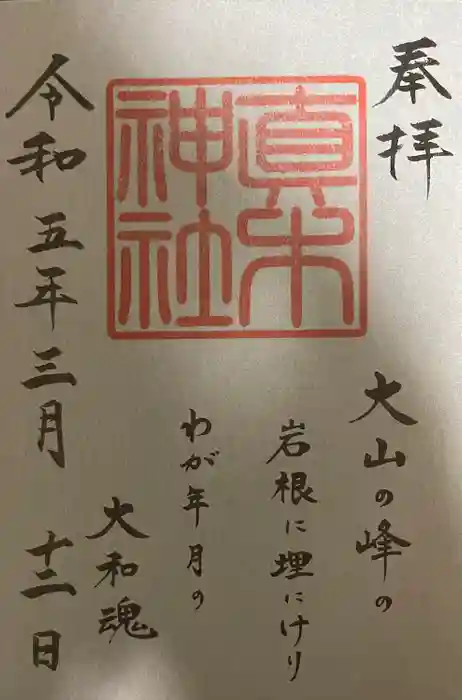 奉拝
真木神社
大山の峰の
岩根に埋にけり
わが年月の
大和魂
令和五年三月十二日